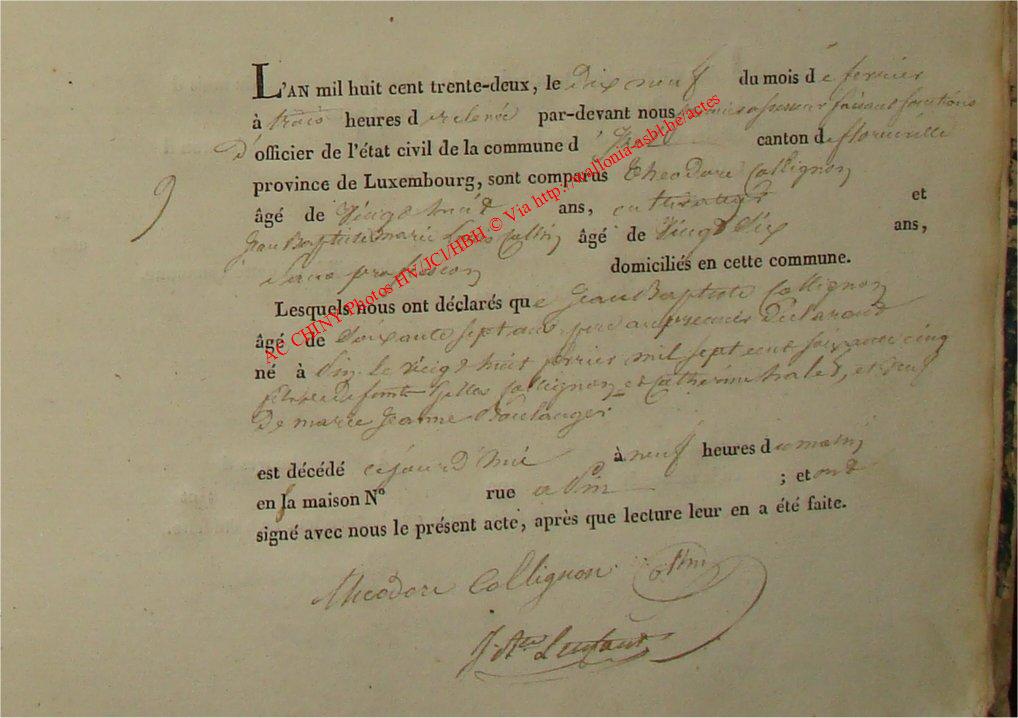 L'AN mil huit cent trente-deux, le Dix neuf du mois de fevrier
à trois heures de relevée par-devant nous premier assesseur faisant fonctions
d'officier de l'état civil de la commune d' canton de florenville
province de Luxembourg, sont comparus theodore Collignon
9
âgé de vingt huit ans, cultivateur et
Jean Baptiste marie Collin âgé de vingt Six ans,
Sans profession domiciliés en cette commune.
Lesquels nous ont déclarés que Jean Baptiste Collignon
âgé de Soixante sept ans, père au premier Déclarant
né à Pin le vingt huit fevrier mil sept cent soixante cinq
fils de defunts Gilles Collignon et Catherine, et veuf
De marie Jeanne Boulanger
est décédé cejourd'hui à neuf heures du matin
en la maison N° rue a Pin ; et ont
signé avec nous le présent acte, après que lecture leur en a été faite.
theodore Collignon
AC CHINY Photos HV/JCl/HBH © Via http://wallonia-asbl.be/actes